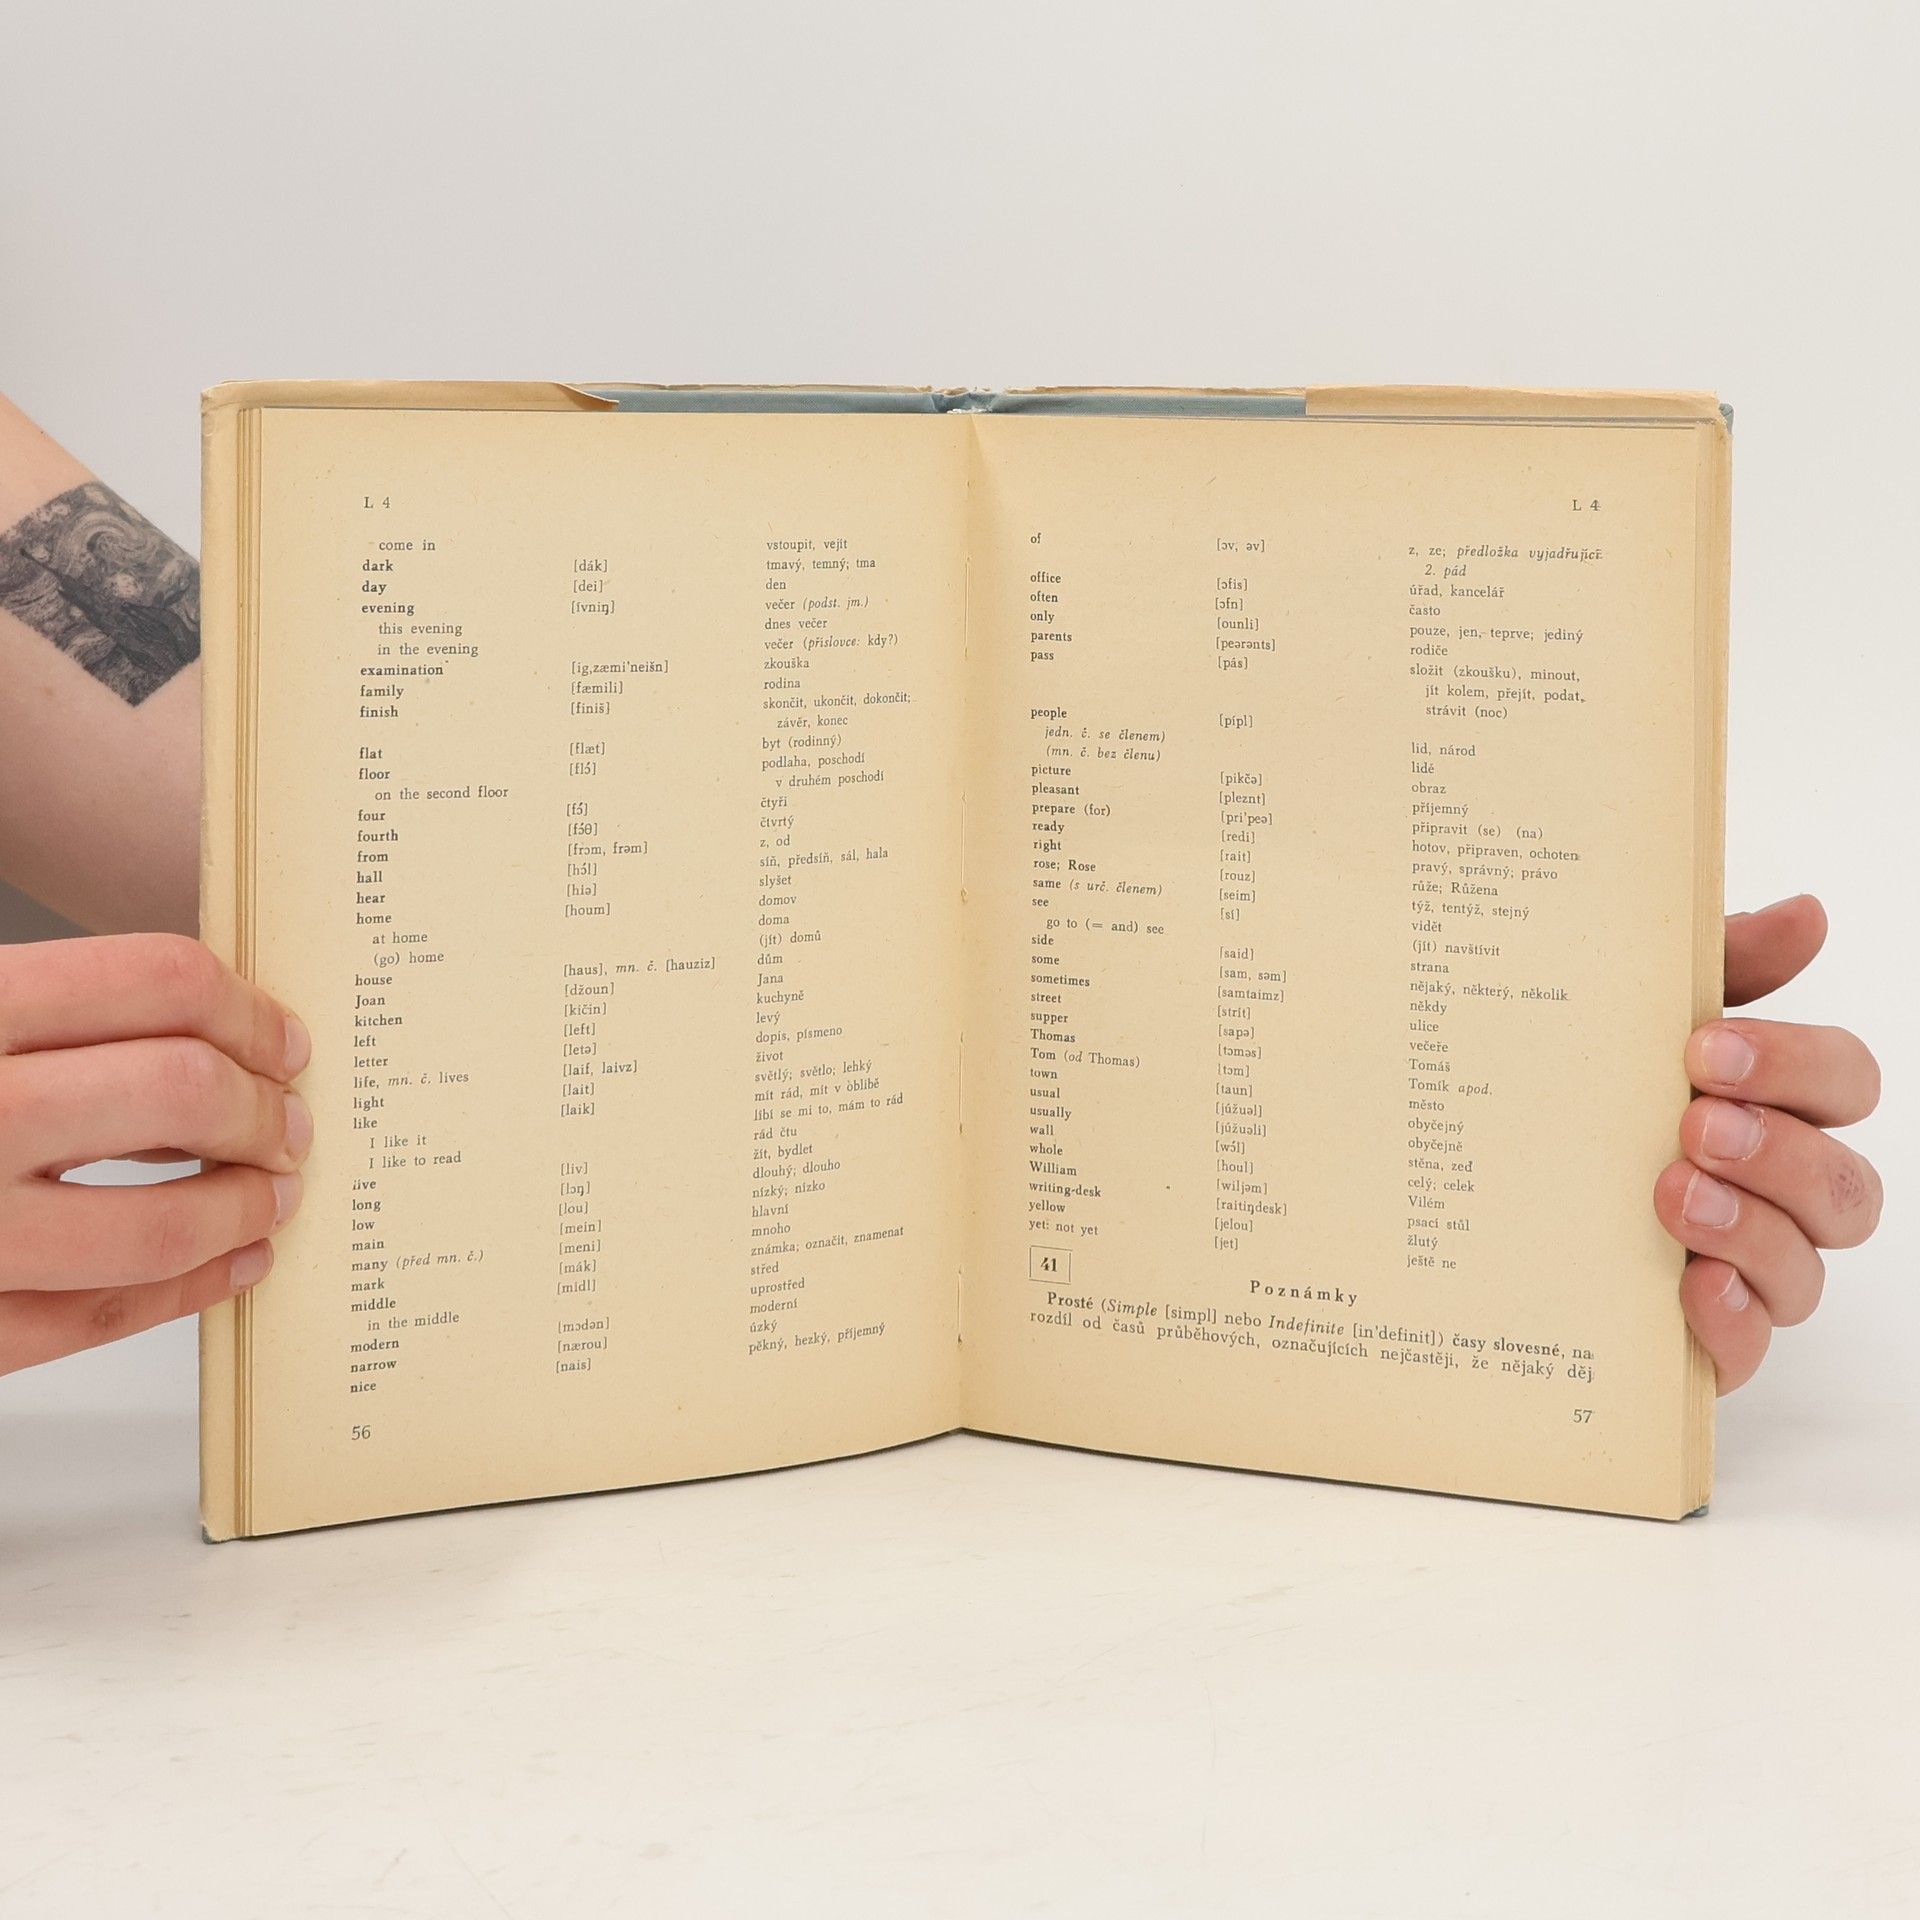 L 4
come in vstoupit, vejít
dark [dák] tmavý, temný; tma
day [dei] den
evening [ívniŋ] večer (podst. jm.)
this evening dnes večer
in the evening večer (příslovce: kdy?)
examination [igˌzæmi'neišn] zkouška
family [fæmili] rodina
finish [finiš] skončit, ukončit, dokončit;
závěr, konec
flat [flæt] byt (rodinný)
floor [flɔ́] podlaha, poschodí
on the second floor v druhém poschodí
four [fɔ́] čtyři
fourth [fɔ́θ] čtvrtý
from [from, frəm] z, od
hall [hɔ́l] síň, předsíň, sál, hala
hear [hiə] slyšet
home [houm] domov
at home doma
(go) home (jít) domů
house [haus], mn. č. [hauziz] dům
Joan [džoun] Jana
kitchen [kičin] kuchyně
left [left] levý
letter [letə] dopis, písmeno
life, mn. č. lives [laif, laivz] život
light [lait] světlý; světlo; lehký
like [laik] mít rád, mít v oblibě
I like it líbí se mi to, mám to rád
I like to read rád čtu
live [liv] žít, bydlet
long [lɔŋ] dlouhý; dlouho
low [lou] nízký; nízko
main [mein] hlavní
many (před mn. č.) [meni] mnoho
mark [mák] známka; označit, znamenat
middle [midl] střed
in the middle uprostřed
modern [mɔdən] moderní
narrow [nærou] úzký
nice [nais] pěkný, hezký, příjemný
56
L 4
of [ɔv, əv] z, ze; předložka vyjadřující
2. pád
office [ɔfis] úřad, kancelář
often [ɔfn] často
only [ounli] pouze, jen, teprve; jediný
parents [peərənts] rodiče
pass [pás] složit (zkoušku), minout,
jít kolem, přejít, podat,
strávit (noc)
people [pípl]
jedn. č. se členem) lid, národ
(mn. č. bez členu) lidé
picture [pikčə] obraz
pleasant [pleznt] příjemný
prepare (for) [pri'peə] připravit (se) (na)
ready [redi] hotov, připraven, ochoten
right [rait] pravý, správný; právo
rose; Rose [rouz] růže; Růžena
same (s urč. členem) [seim] týž, tentýž, stejný
see [sí] vidět
go to (= and) see (jít) navštívit
side [said] strana
some [sam, səm] nějaký, některý, několik
sometimes [samtaimz] někdy
street [strít] ulice
supper [sapə] večeře
Thomas [tɔməs] Tomáš
Tom (od Thomas) [tɔm] Tomík apod.
town [taun] město
usual [júžuəl] obyčejný
usually [júžuəli] obyčejně
wall [wɔ́l] stěna, zeď
whole [houl] celý; celek
William [wiljəm] Vilém
writing-desk [raitiŋdesk] psací stůl
yellow [jelou] žlutý
yet: not yet [jet] ještě ne
41
Poznámky
Prosté (Simple [simpl] nebo Indefinite [in'definit]) časy slovesné, na
rozdíl od časů průběhových, označujících nejčastěji, že nějaký děj
57